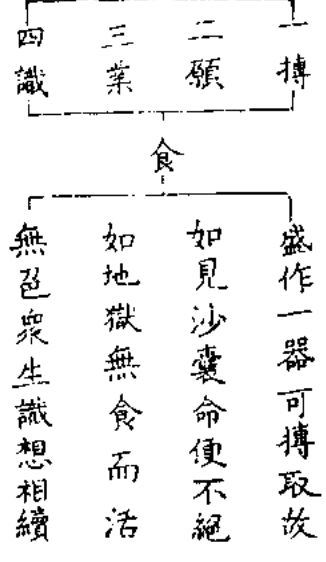 一摶
二願
三業
四識
食
盛作一器可摶取故
如見沙囊命便不絕
如地獄無食而活
無色衆生識想相續